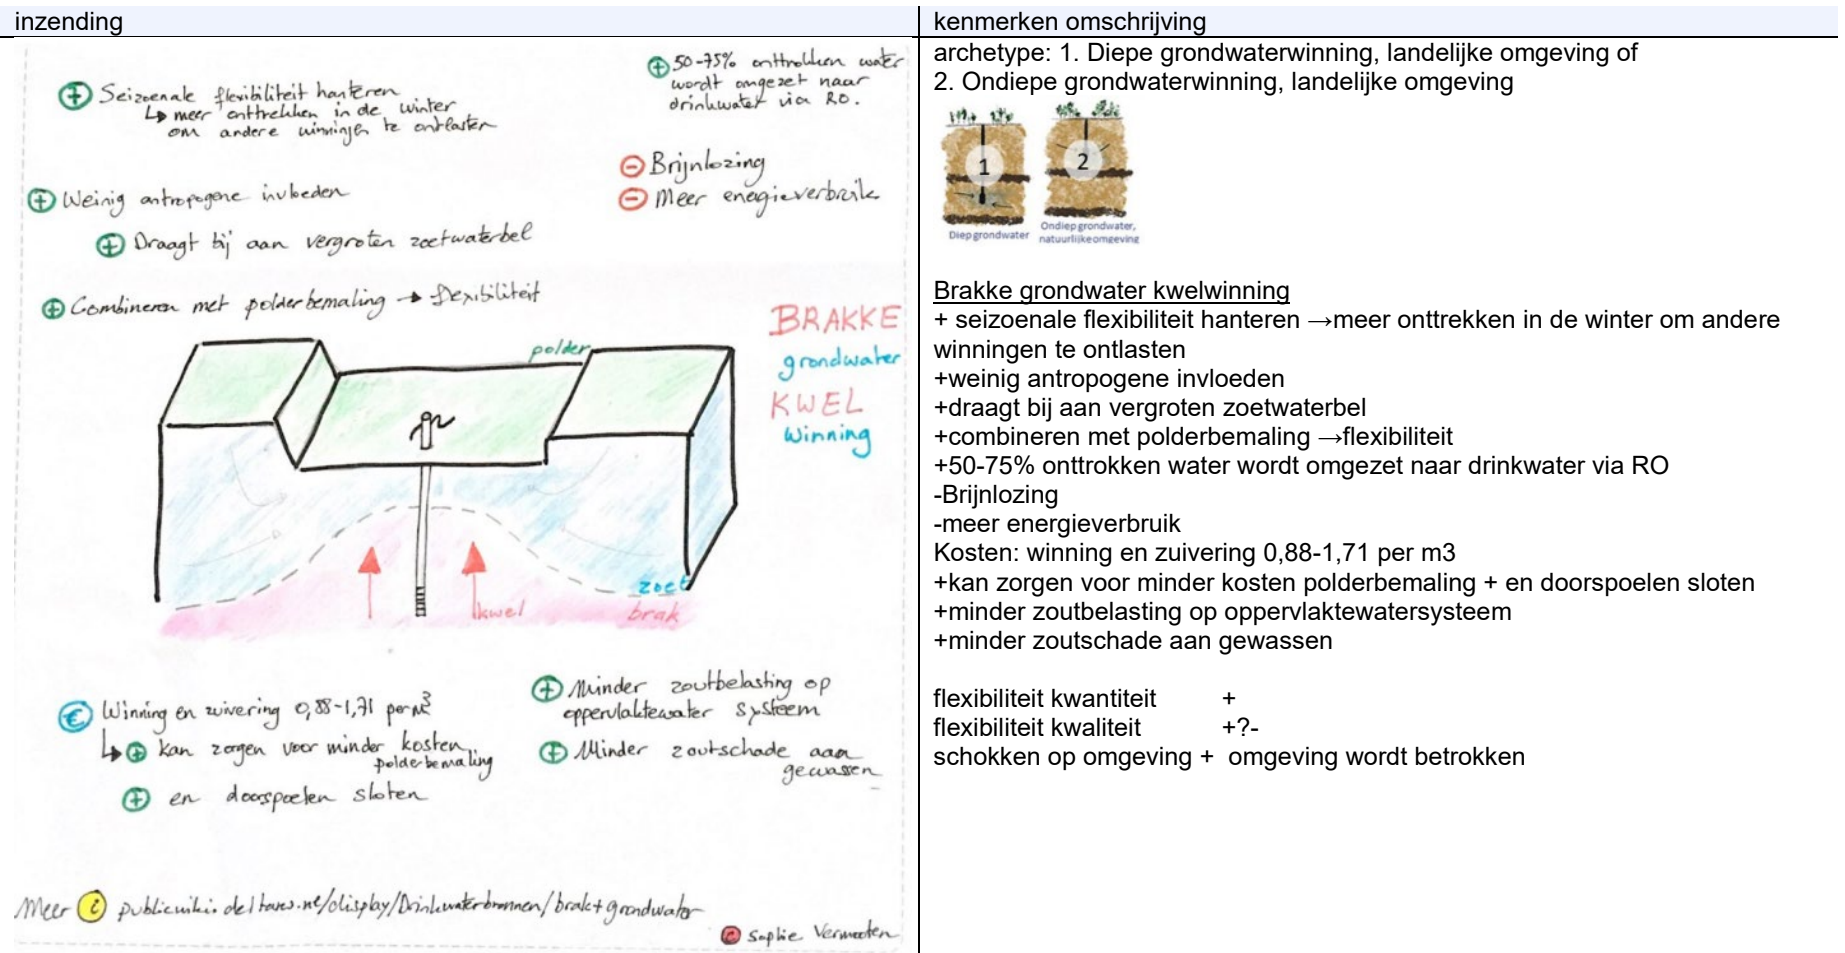 inzending
kenmerken omschrijving
⊕ Seizoenale flexibiliteit hanteren
↳ meer onttrekken in de winter
om andere winningen te ontlasten
⊕ 50-75% onttrokken water
wordt omgezet naar
drinkwater via RO.
⊖ Brijnlozing
⊖ Meer energieverbruik
⊕ Weinig antropogene invloeden
⊕ Draagt bij aan vergroten zoetwaterbel
⊕ Combineren met polderbemaling → flexibiliteit
BRAKKE
grondwater
KWEL
winning
polder
zoet
kwel
brak
€ Winning en zuivering 0,88-1,71 per m³
↳ ⊕ kan zorgen voor minder kosten
polderbemaling
⊕ en doorspoelen sloten
⊕ Minder zoutbelasting op
oppervlaktewater systeem
⊕ Minder zoutschade aan
gewassen
Meer i publicwiki.deltares.nl/display/Drinkwaterbronnen/brak+grondwater
© Sophie Vermooten
archetype: 1. Diepe grondwaterwinning, landelijke omgeving of
2. Ondiepe grondwaterwinning, landelijke omgeving
1
2
Diep grondwater
Ondiep grondwater,
natuurlijke omgeving
Brakke grondwater kwelwinning
+ seizoenale flexibiliteit hanteren →meer onttrekken in de winter om andere
winningen te ontlasten
+weinig antropogene invloeden
+draagt bij aan vergroten zoetwaterbel
+combineren met polderbemaling →flexibiliteit
+50-75% onttrokken water wordt omgezet naar drinkwater via RO
-Brijnlozing
-meer energieverbruik
Kosten: winning en zuivering 0,88-1,71 per m3
+kan zorgen voor minder kosten polderbemaling + en doorspoelen sloten
+minder zoutbelasting op oppervlaktewatersysteem
+minder zoutschade aan gewassen
flexibiliteit kwantiteit +
flexibiliteit kwaliteit +?-
schokken op omgeving + omgeving wordt betrokken